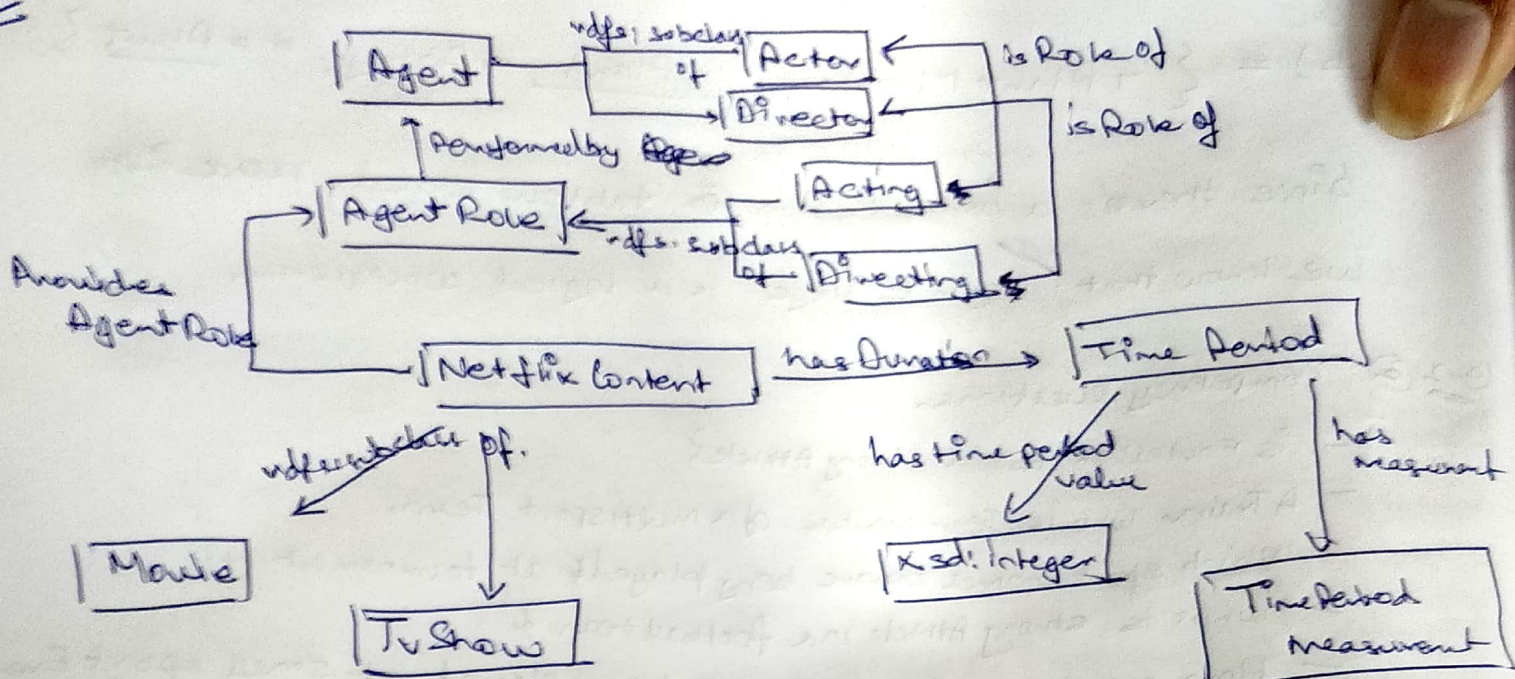 Agent
rdfs: subclass
of
Actor
Director
is Role of
is Role of
Performed by
Acting
Agent Role
rdfs: subclass
of
Directing
Provides
Agent Role
Netflix Content
has Duration
Time Period
rdfs subclass of.
has time period
value
has
measurment
Movie
xsd: integer
Tv Show
Time Period
measurment